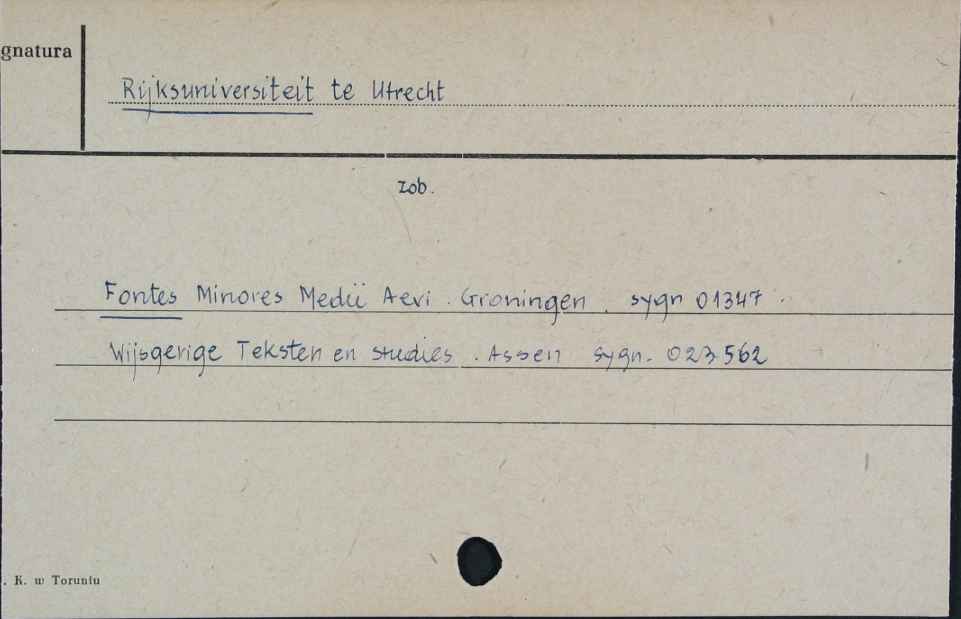 gnatura
Rijksuniversiteit te Utrecht
zob.
Fontes Minores Medii Aevi. Groningen. sygn 01347
Wijsgerige Teksten en studies. Assen sygn. 023562
. K. w Toruniu